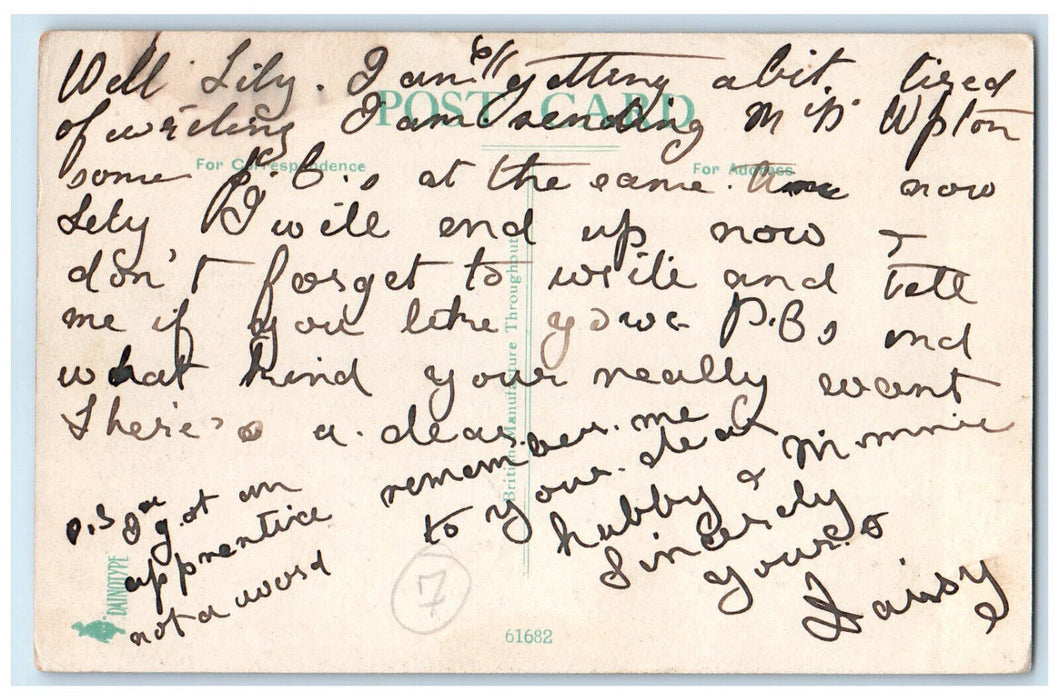 6//
Well Lily. I am getting a bit tired
POST CARD
of writing I am sending Mrs Upton
For Correspondence
For Address
some p.c.s at the same. now
Lily I will end up now +
don't forget to write and tell
me if you like your P.C.s and
what kind your really want
There's a dear. remember me
to your dear
hubby & Minnie
Sincerely
yours
Daisy
P.S I've
got an
apprentice
not a word
British Manufacture Throughout
DAINOTYPE
7
61682